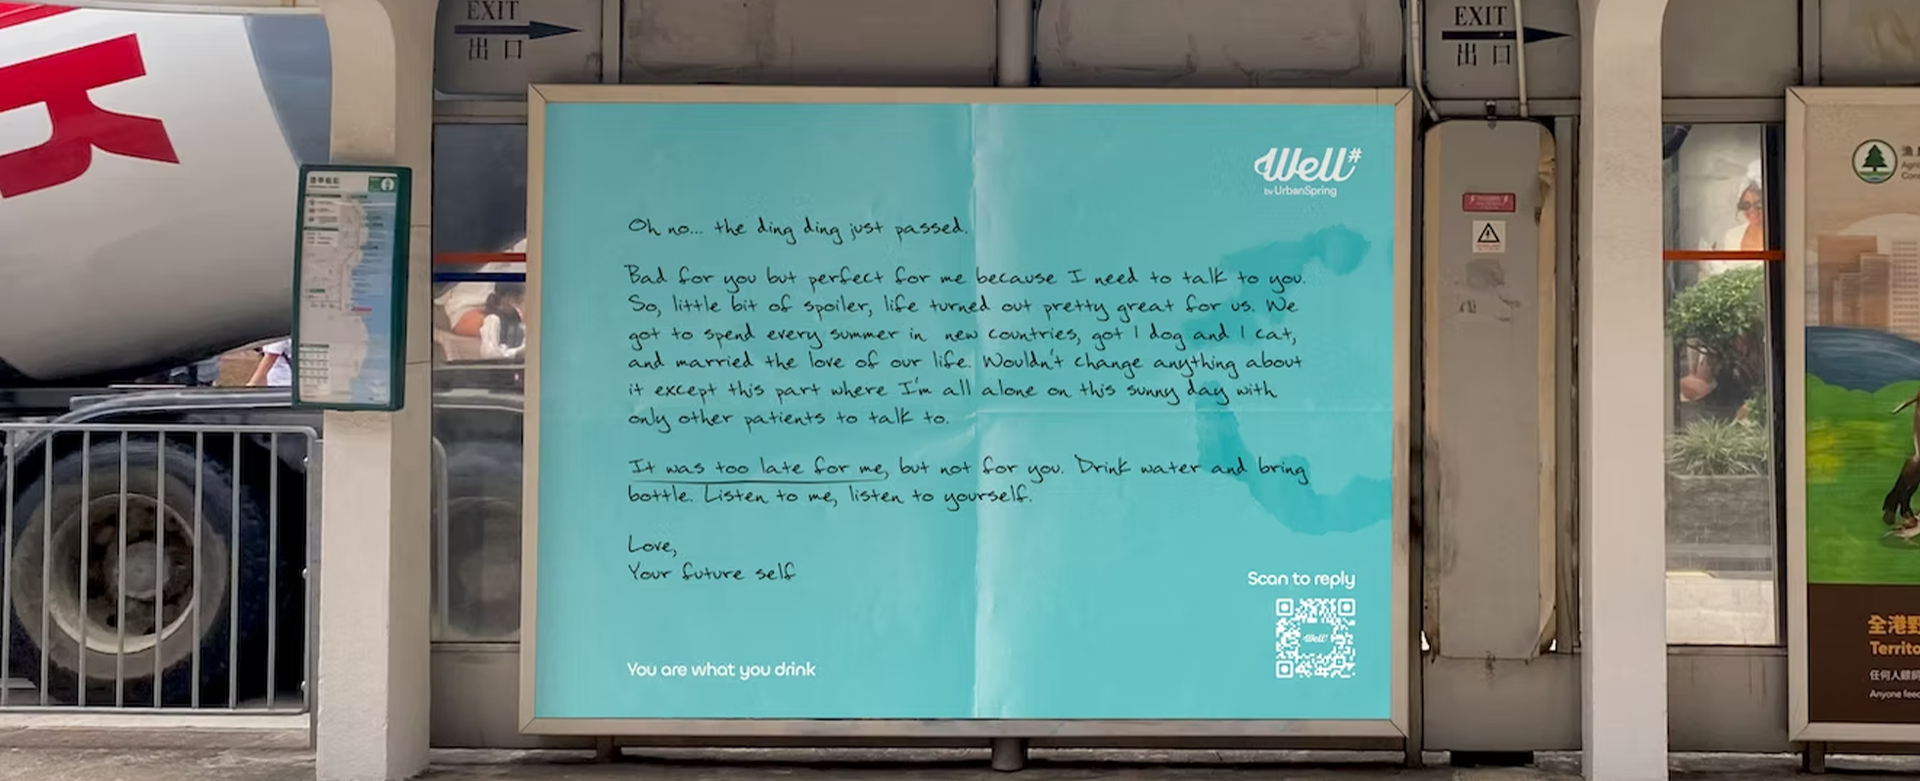 EXIT
出口
EXIT
出口
k
Well#
by UrbanSpring
Oh no... the ding ding just passed.
Bad for you but perfect for me because I need to talk to you.
So, little bit of spoiler, life turned out pretty great for us. We
got to spend every summer in new countries, got 1 dog and 1 cat,
and married the love of our life. Wouldn't change anything about
it except this part where I'm all alone on this sunny day with
only other patients to talk to.
It was too late for me, but not for you. Drink water and bring
bottle. Listen to me, listen to yourself.
Love,
Your future self
Scan to reply
Well#
You are what you drink
漁
Agri
Cons
全港野
Territo
任何人餵飼
Anyone feed